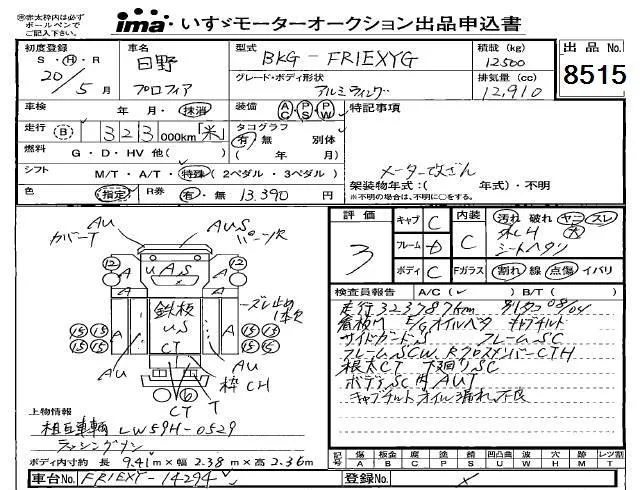 ※赤太枠内は必ず
ボールペンで
ご記入下さい。
ima いすゞモーターオークション出品申込書
初度登録 車名 型式 積載 (kg) 出品No.
S・H・R 日野 BKG-FR1EXYG 12500
20/5月 プロフィア グレード・ボディ形状 排気量 (cc) 8515
アルミウィング 12,910
車検 年・月・抹消 装備 AC・PS・PW 特記事項
走行 B 323 000km 米 タコグラフ 有・無 別体
燃料 G・D・HV 他( ) ( 年 / 月) メーター改ざん
シフト M/T・A/T・特殊(2ペダル・3ペダル) 架装物年式:( 年式)・不明
※不明の場合は、不明に○をする。
色 指定 R券 有・無 13,390 円
評価 3
キャブ C 内装 C 汚れ 破れ ヤニ スレ
フレーム D シートヘタリ
ボディ C Fガラス 割れ 線 点傷 イバリ
検査員報告 A/C( ) B/T( )
走行323787km
E/Gオイルベタ キャブチルト
サイドガードS フレームSC
フレームSCW, Rクロスメンバー CTH
根太CT 下廻りSC
ボディSC内AUT
キャブチルトオイル漏れ不良
AU
カバーT
AUS
バンパーX
12 12
A A
UAS
A A
鉄板
US
CT
ズレ止め
1本欠
15 15 15 15
15 15 15 15
AU AU
枠CH
CT T
上物情報
相互車輌 LW59H-0529
ラッシングナシ
ボディ内寸約 長 9.41m×幅 2.38m×高 2.36m
記号 傷 凹 腐 塗 錆 凹凸曲 波 穴 跡 レツ割
A B C P S U W H M T
車台No. FR1EXY-14294 登録No.